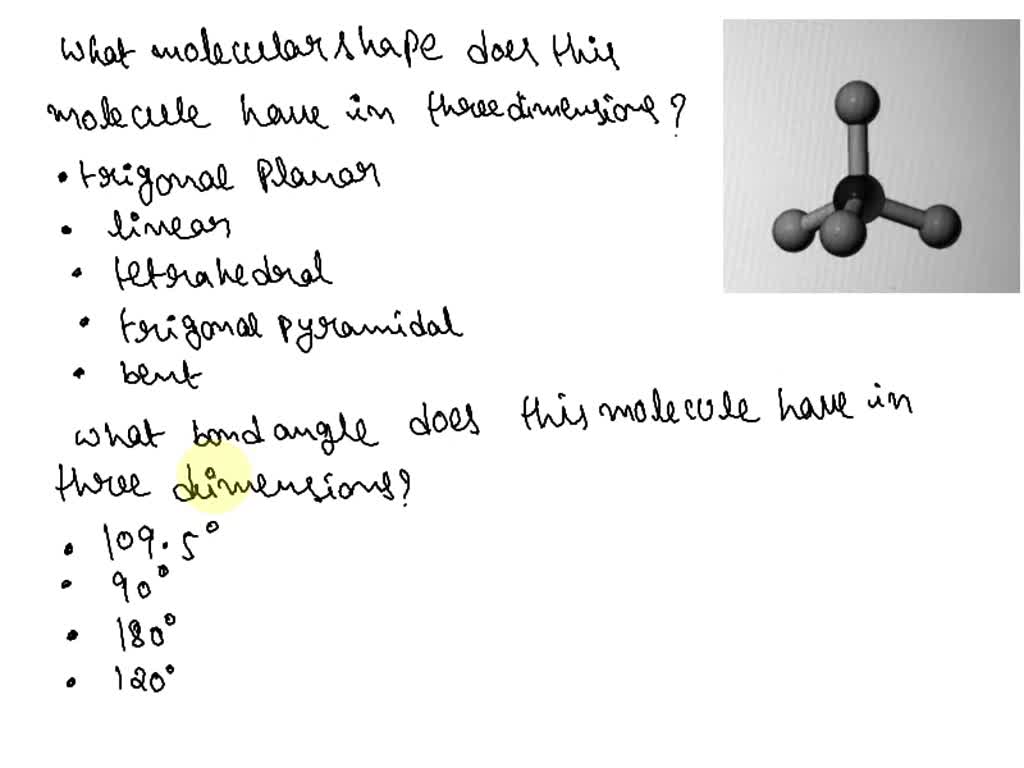 What molecular shape does this
molecule have in three dimensions?
• trigonal Planar
• linear
• tetrahedral
• trigonal pyramidal
• bent
What bond angle does this molecule have in
three dimensions?
• 109.5°
• 90°
• 180°
• 120°